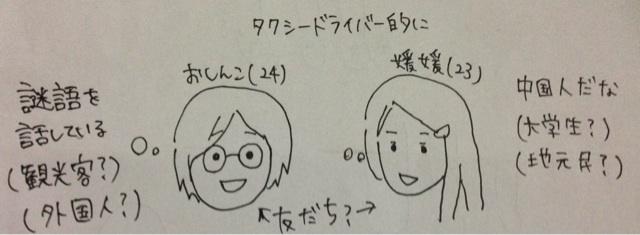 タクシードライバー的に
おしんこ(24)
媛媛(23)
謎語を
話している
(観光客?)
(外国人?)
中国人だな
(大学生?)
(地元民?)
←友だち?→